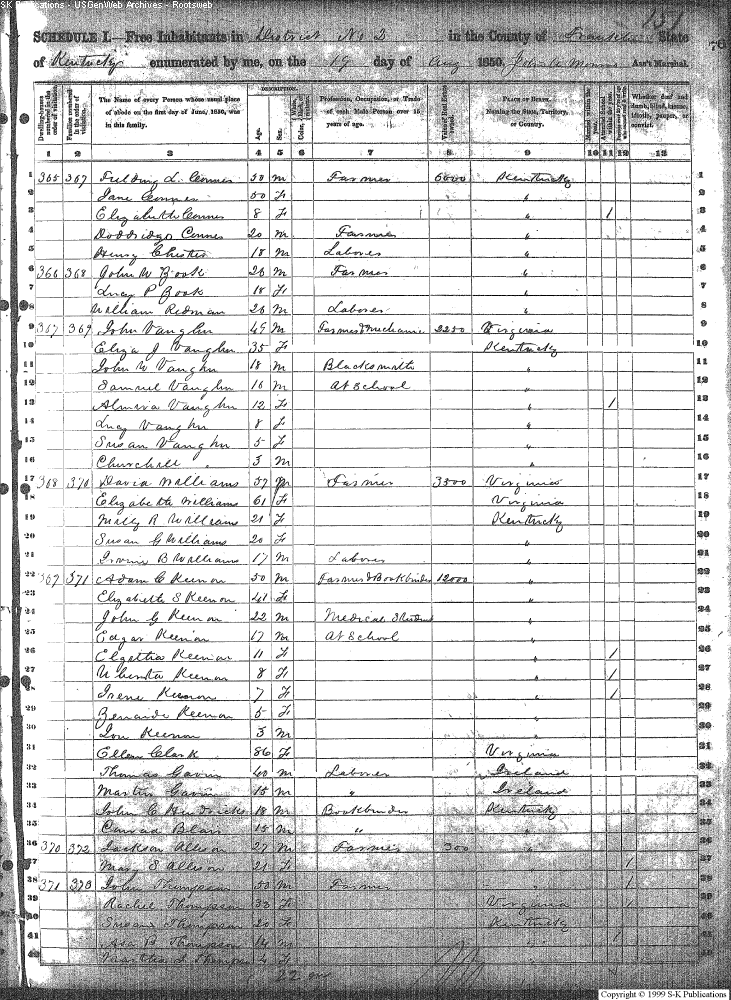 S-K Publications - USGenWeb Archives - Rootsweb
151
SCHEDULE I.—Free Inhabitants in District No 2 in the County of Franklin State
of Kentucky enumerated by me, on the 19 day of Aug 1850. Ass't Marshal.
76
DESCRIPTION.
Dwelling-houses numbered in the order of visitation.
Families numbered in the order of visitation.
The Name of every Person whose usual place of abode on the first day of June, 1850, was in this family.
Age.
Sex.
Profession, Occupation, or Trade of each Male Person over 15 years of age.
Value of Real Estate owned.
PLACE OF BIRTH. Naming the State, Territory, or Country.
Whether deaf and dumb, blind, insane, idiotic, pauper, or convict.
1 2 3 4 5 6 7 8 9 10 11 12 13
1 365 367 Fielding L. Conner 50 M Farmer 6000 Kentucky 1
2 Jane Conner 50 F " 2
3 Elizabeth Conner 8 F " / 3
4 Doddridge Conner 20 M Farmer " 4
5 Henry 18 M Laborer " 5
6 366 368 John W Book 26 M Farmer " 6
7 Lucy P Book 18 F " 7
8 William Redman 26 M Laborer " 8
9 367 369 John Vaughn 49 M Farmer & Mechanic 2250 Virginia 9
10 Eliza J Vaughn 35 F Kentucky 10
11 John W Vaughn 18 M Blacksmith " 11
12 Samuel Vaughn 16 M At School " 12
13 Vaughn 12 F " / 13
14 Lucy Vaughn 8 F " 14
15 Susan Vaughn 5 F " 15
16 Churchill " 3 M " 16
17 368 370 David Williams 57 M Farmer 3500 Virginia 17
18 Elizabeth Williams 61 F Virginia 18
19 Milly R Williams 21 F Kentucky 19
20 Susan G Williams 20 F " 20
21 B Williams 17 M Laborer " 21
22 369 371 Adam C Keenon 50 M Farmer & Bookbinder 12000 " 22
23 Elizabeth S Keenon 41 F " 23
24 John G Keenon 22 M Medical Student " 24
25 Edgar Keenon 17 M At School " 25
26 Keenon 11 F " / 26
27 Keenon 8 F " / 27
28 Irene Keenon 7 F " / 28
29 Zenaide Keenon 5 F " 29
30 Lon Keenon 3 M " 30
31 Ellen Clark 86 F Virginia 31
32 Thomas Gavin 40 M Laborer Ireland 32
33 Martin Gavin 15 M " Ireland 33
34 John C Hendricks 18 M Bookbinder Kentucky 34
35 Conrad Blair 15 M " " 35
36 370 372 Jackson Allison 27 M Farmer 300 " 36
37 Mary S Allison 21 F " / 37
38 371 373 John Thompson 50 M Farmer " / 38
39 Rachel Thompson 33 F Virginia / 39
40 Susan Thompson 20 F Kentucky 40
41 Asa P Thompson 14 M " / 41
42 Martha J Thompson 4 F " 42
Copyright © 1999 S-K Publications